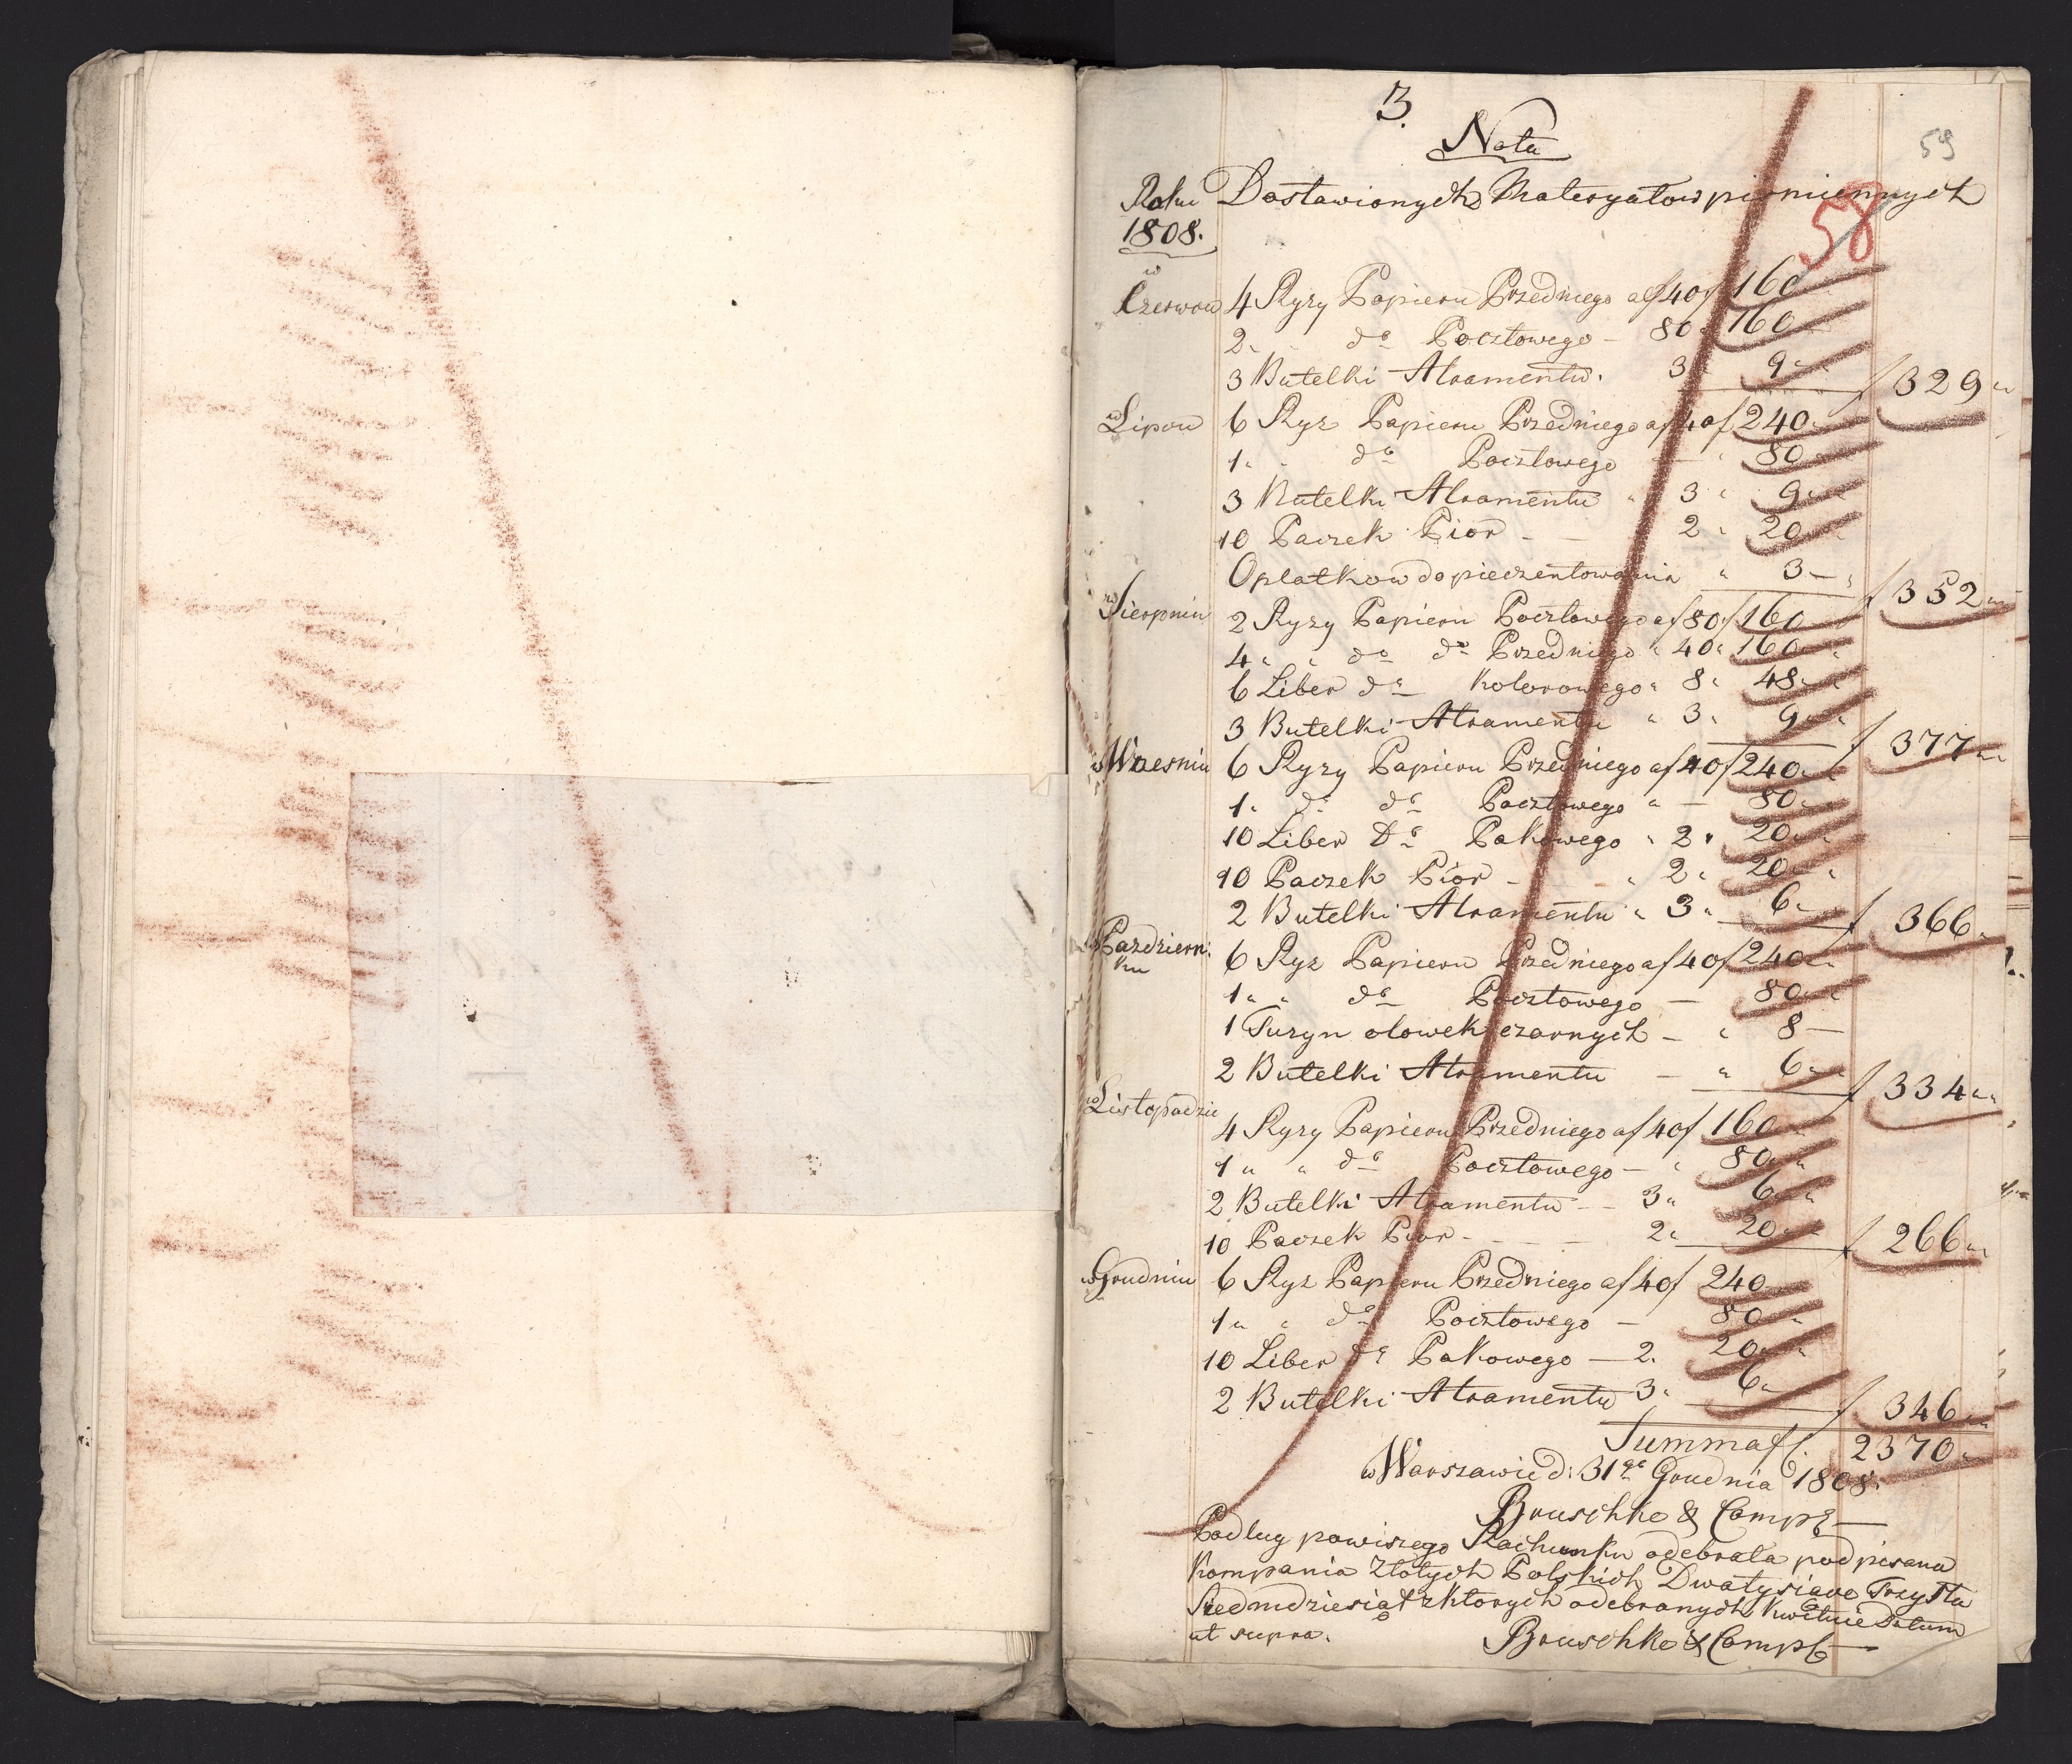 3.
Nota
59
Roku Dostawionych Materyałow pismiennych
1808.
58
w Czerwcu 4 Ryzy Papieru Przedniego a f 40 f 160
2 " " do Pocztowego - 80 " 160
3 Butelki Atramentu. 3 " 9 " f 329 "
w Lipcu 6 Ryz Papieru Przedniego a f 40 f 240 "
1 " " do Pocztowego — " 80 "
3 Butelki Atramentu " 3 " 9 "
10 Paczek Pior - — 2 " 20 "
Opłatkow do pieczentowania " 3 — " f 352 "
w Sierpniu 2 Ryzy Papieru Pocztowego a f 80 f 160
4 " " do do Przedniego " 40 " 160 "
6 Liber do Kolorowego " 8 " 48 "
3 Butelki Atramentu " 3 " 9 " f 377 "
w Wrzesniu 6 Ryzy Papieru Przedniego a f 40 f 240 "
1 " do do Pocztowego " — 80 "
10 Liber Do Pakowego " 2 " 20 "
10 Paczek Piór - - " 2 " 20 "
2 Butelki Atramentu " 3 " 6 " f 366 "
w Pazdzierni:
ku 6 Ryz Papieru Przedniego a f 40 f 240 "
1 " " do Pocztowego — 80 "
1 Tuzyn olowek czarnych — " 8 —
2 Butelki Atramentu — " 6 " f 334 "
w Listopadzie
4 Ryzy Papieru Przedniego a f 40 f 160 "
1 " " do Pocztowego — " 80 "
2 Butelki Atramentu - - 3 " 6 "
10 Paczek Pior - - - — 2 " 20 " f 266 "
w Grudniu 6 Ryz Papieru Przedniego a f 40 f 240
1 " " do Pocztowego — 80 "
10 Liber do Pakowego — 2 " 20 "
2 Butelki Atramentu 3 " 6 " f 346 "
Summa f. 2370 "
w Warszawie d: 31go Grudnia 1808.
Bruschke & Comp
Podług powiszego Rachunku odebrała podpisana
Kompania Złotych Polskich Dwatysiące Trzysta
Siedmdziesiąt z ktorych odebranych Kwituie Datum
ut supra.
Bruschke & Comp